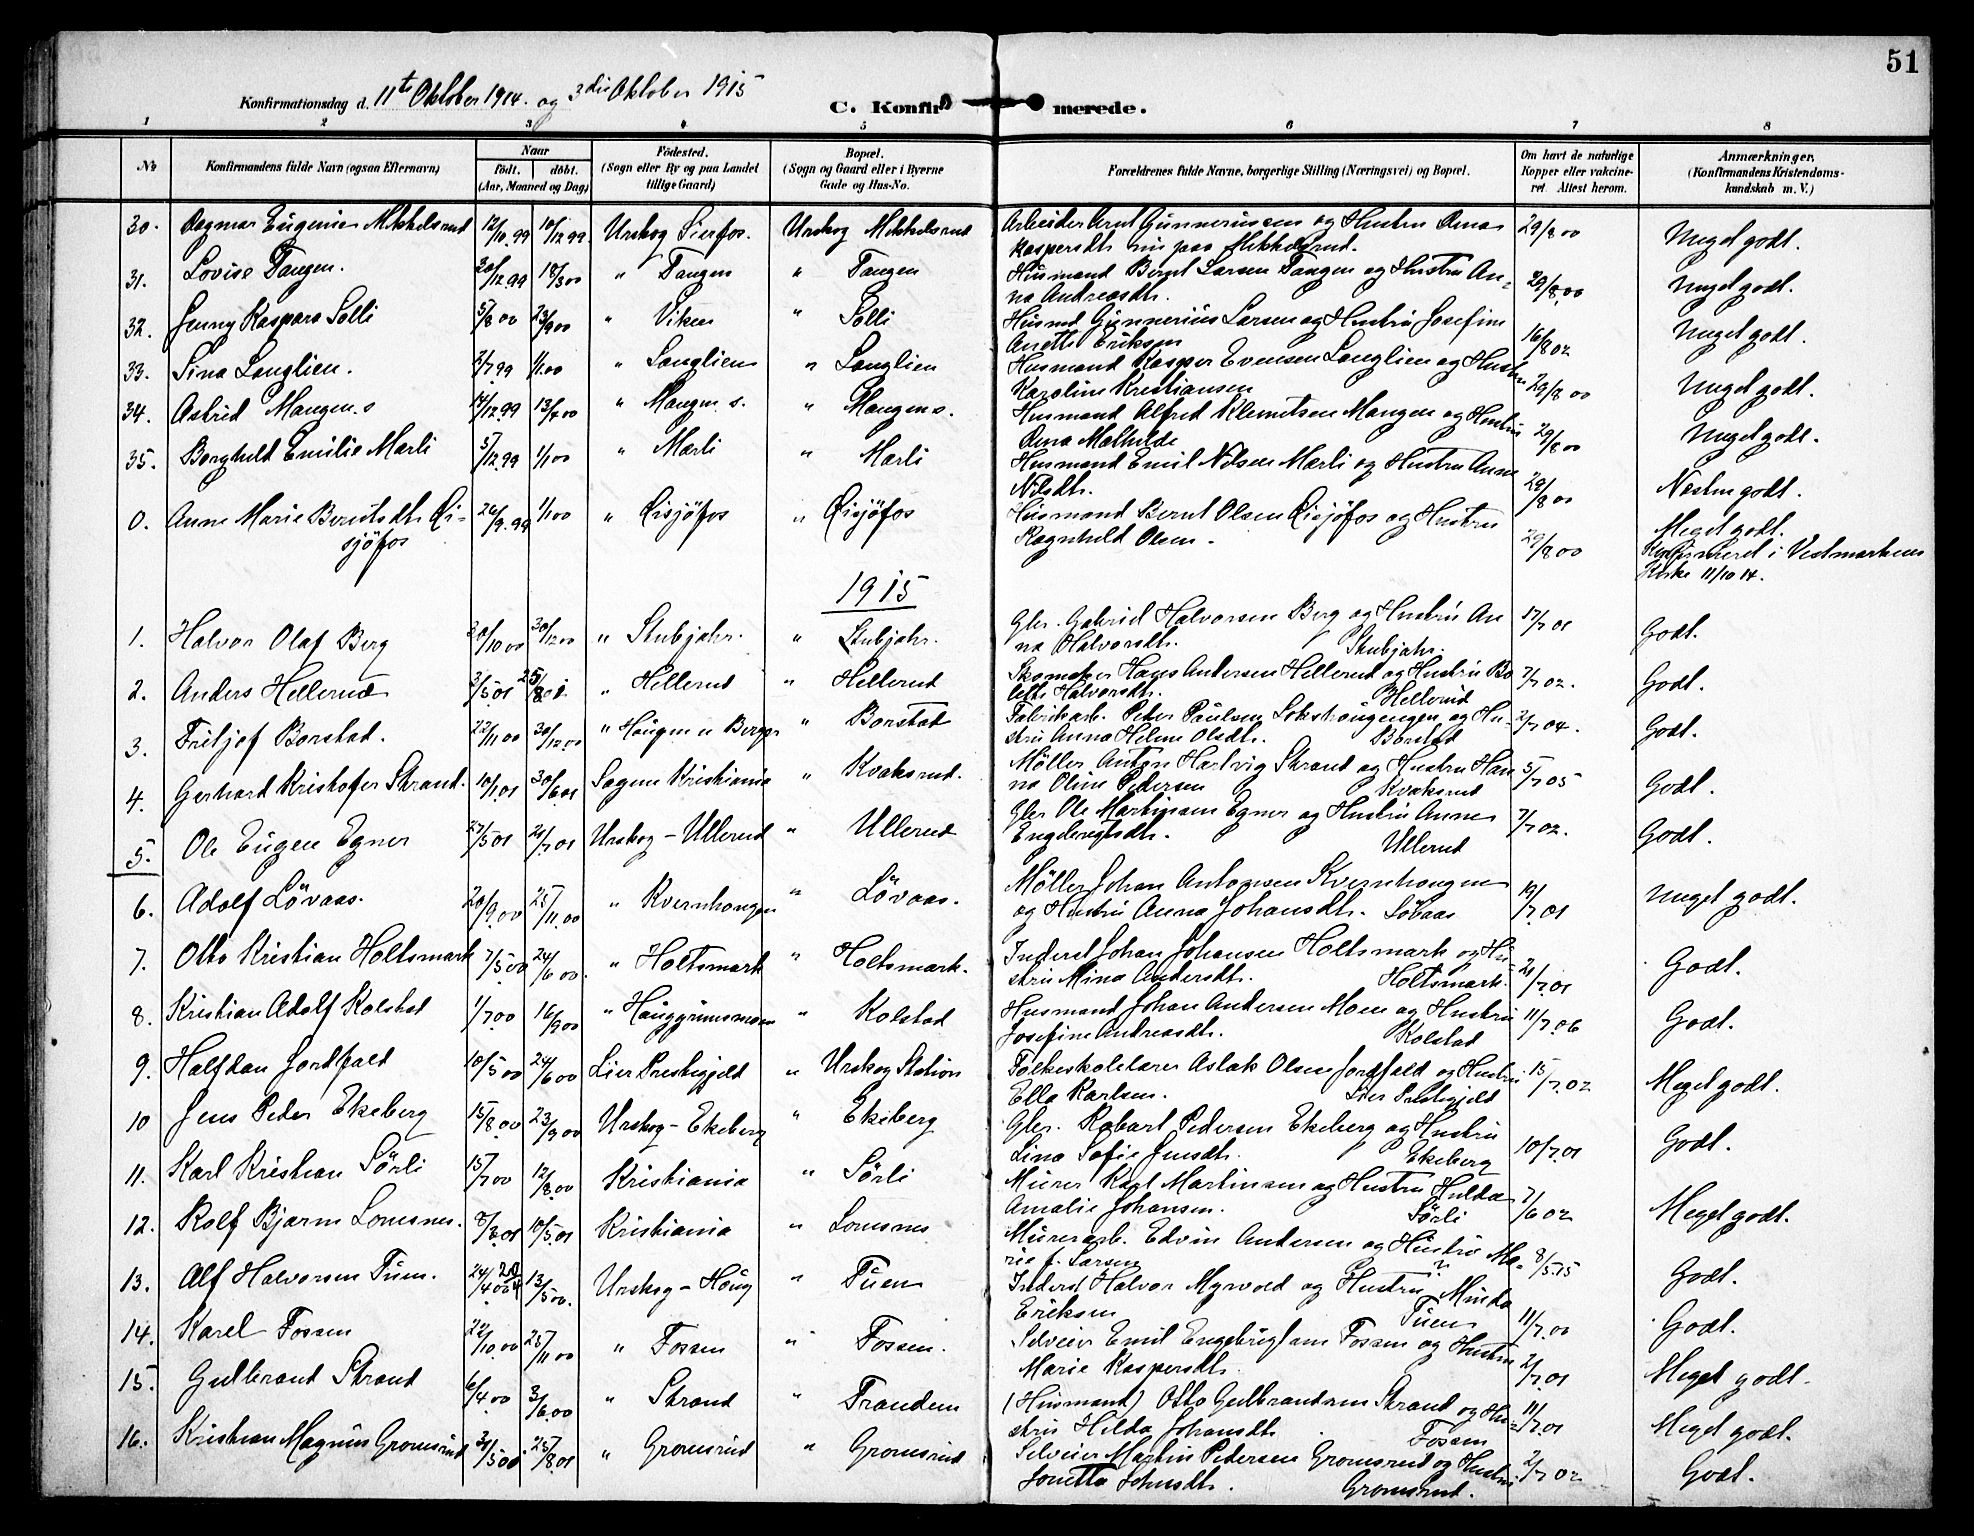 51
Konfirmationsdag d. 11te Oktober 1914. og 3die Oktober 1915
C. Konfirmerede.
1 2 3 4 5 6 7 8
No
Konfirmandens fulde Navn (ogsaa Efternavn)
Naar
födt. döbt.
(Aar, Maaned og Dag)
Födested.
(Sogn eller By og paa Landet
tillige Gaard)
Bopæl.
(Sogn og Gaard eller i Byerne
Gade og Hus-No.
Forældrenes fulde Navne, borgerlige Stilling (Næringsvei) og Bopæl.
Om havt de naturlige
Kopper eller vakcine-
ret. Attest herom.
Anmærkninger.
(Konfirmandens Kristendoms-
kundskab m. V.)
30. Dagmar Eugenie Mikkelsrud 12/10.99 10/12 99 Urskog Lierfos. Urskog Mikkelsrud Arbeider Arnt Gunneriussen og Hustru Anna 29/8 00 Meget godt.
Kaspersdtr. nu paa Mikkelsrud.
31. Lovise Tangen. 20/12.99 18/3 00 " Tangen " Tangen Husmand Bernt Larsen Tangen og Hustru An- 29/8.00 Meget godt.
na Andreasdtr.
32. Jenny Kaspara Solli 5/8 00 23/9 00 " Viken " Solli Husmd Gunnerius Larsen og Hustru Josefine 16/8 02 Meget godt.
Anette Eriksen
33. Sina Langlien. 2/7 99 1/1.00 " Langlien " Langlien Husmand Kasper Evensen Langlien og Hustru 29/8 00 Meget godt.
Karoline Kristiansen
34. Astrid Mangen s 14/12.99 13/4 00 " Mangen s. " Mangen s. Husmand Alfred Klemetsen Mangen og Hustru 29/8 00 Meget godt.
Anna Mathilde
35. Borghild Emilie Mærli 5/12.99 1/1 00 " Mærli " Mærli Husmand Emil Nilsen Mærli og Hustru Anne 29/8 00 Næsten godt.
Nilsdtr.
0. Anne Marie Berntsdtr. Öi- 26/9.99 1/1 00 " Öisjöfos " Öisjöfos Husmand Bernt Olsen Öisjöfos og Hustru 29/8 00 Meget godt.
sjöfos Ragnhild Olsen. Konfirmeret i Vestmarkens
Kirke 11/10 14.
1915
1. Halvor Olaf Berg 20/10 00 30/12 00 " Stubjahr. " Stubjahr. Gbr. Gabriel Halvorsen Berg og Hustru An- 17/7 01 Godt.
na Halvorsdtr. Stubjahr.
2. Anders Hellerud 3/5.01 25/8 01 " Hellerud " Hellerud Skomaker Hans Andersen Hellerud og Hustru Bo- 7/7 02. Godt.
lette Halvorsdtr. Hellerud
3. Fritjof Borstad. 22/11 00 30/12 00 " Haugen u Berger " Borstad Fabrikarb. Peder Paulsen og Hu- 2/7 04. Godt.
stru Anna Helene Olsdtr. Borstad
4. Gerhard Kristofer Strand. 10/1.01 30/6 01 Sagene Kristiania " Kvaksrud. Möller Anton Hartvig Strand og Hustru Han- 5/7 05 Godt.
na Oline Pedersen Kvaksrud
5. Ole Eugen Egner 27/5 01 21/7 01 Urskog - Ullerud " Ullerud Gbr Ole Martinsen Egner og Hustru Anne 7/7 02. Godt.
Engebregtsdtr. Ullerud
6. Adolf Lövaas. 20/9.00 25/11.00 " Kvernhaugen " Lövaas. Möller Johan Antonsen Kvernhaugen 19/7.01 Meget godt.
og Hustru Anna Johansdtr. Lövaas
7. Otto Kristian Holtsmark 7/5.00 24/6 00. " Holtsmark " Holtsmark. Inderst Johan Johansen Holtsmark og Hu- 21/7.01 Godt.
stru Mina Andersdtr. Holtsmark.
8. Kristian Adolf Kolstad 1/7.00 16/9 00 " Hauggrinsmoen " Kolstad Husmand Johan Andersen Moen og Hustru 11/7.06 Godt.
Josefine Andreasdtr. Kolstad
9. Halfdan Jordfald 10/5 00 24/6 00 Lier Prestegjeld " Urskog Station Folkeskolelærer Aslak Olsen Jordfald og Hustru 15/7.02 Meget godt.
Ella Karlsen. Lier Prestegjeld
10 Jens Peder Ekeberg 15/8.00 23/9 00 Urskog - Ekeberg " Ekeberg Gbr. Robart Pedersen Ekeberg og Hustru 10/7.01 Godt.
Lina Sofie Jensdtr. Ekeberg
11. Karl Kristian Sörli 15/7 00 12/8.00 Kristiania " Sörli Murer Karl Martinsen og Hustru Hulda 7/6 02 Meget godt.
Amalie Johansen. Sörli
12. Rolf Bjarne Lomsnes. 8/3.01 10/5.01 Kristiania " Lomsnes Murerarb. Edvin Andersen og Hustru Ma- 8/5.15 Godt.
rie f. Larsen ?
13. Alf Halvorsen Tuen. 24/4 00 13/5 00. Urskog - Haug " Tuen Inderst Halvor Myrvold og Hustru Minda 11/7.00 Godt.
Eriksen Tuen
14. Karel Fossen 22/10.00 25/11 00 " Fossen " Fossen. Selveier Emil Engebrigtsen Fossen og Hustru 2/7.01 Meget godt.
Marie Kaspersdtr.
15. Gulbrand Strand 6/4.00 3/6.00 " Strand " Trandem (Husmand) Otto Gulbrandsen Strand og Hu- 11/7 01 Meget godt.
stru Hilda Johansdtr. Fossen
16. Kristian Magnus Gromsrud 31/5 00 25/8.01 " Gromsrud " Gromsrud Selveier Martin Pedersen Gromsrud og Hustru 2/7 02 Godt.
Jonetta Johnsdtr. Gromsrud.